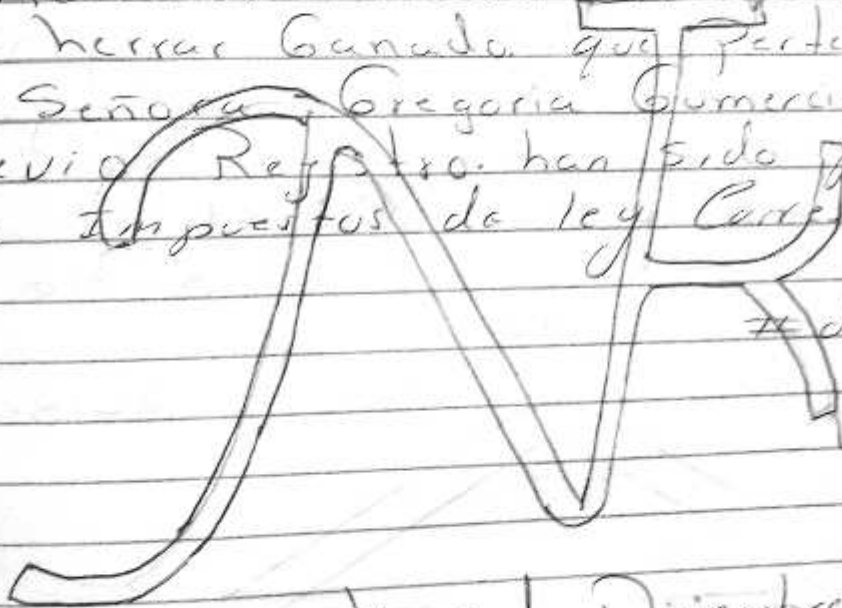 herrar Ganado que Perte
Señora Gregoria Gumerci
evio Registro. han sido
Impuestos de ley
Diciembre